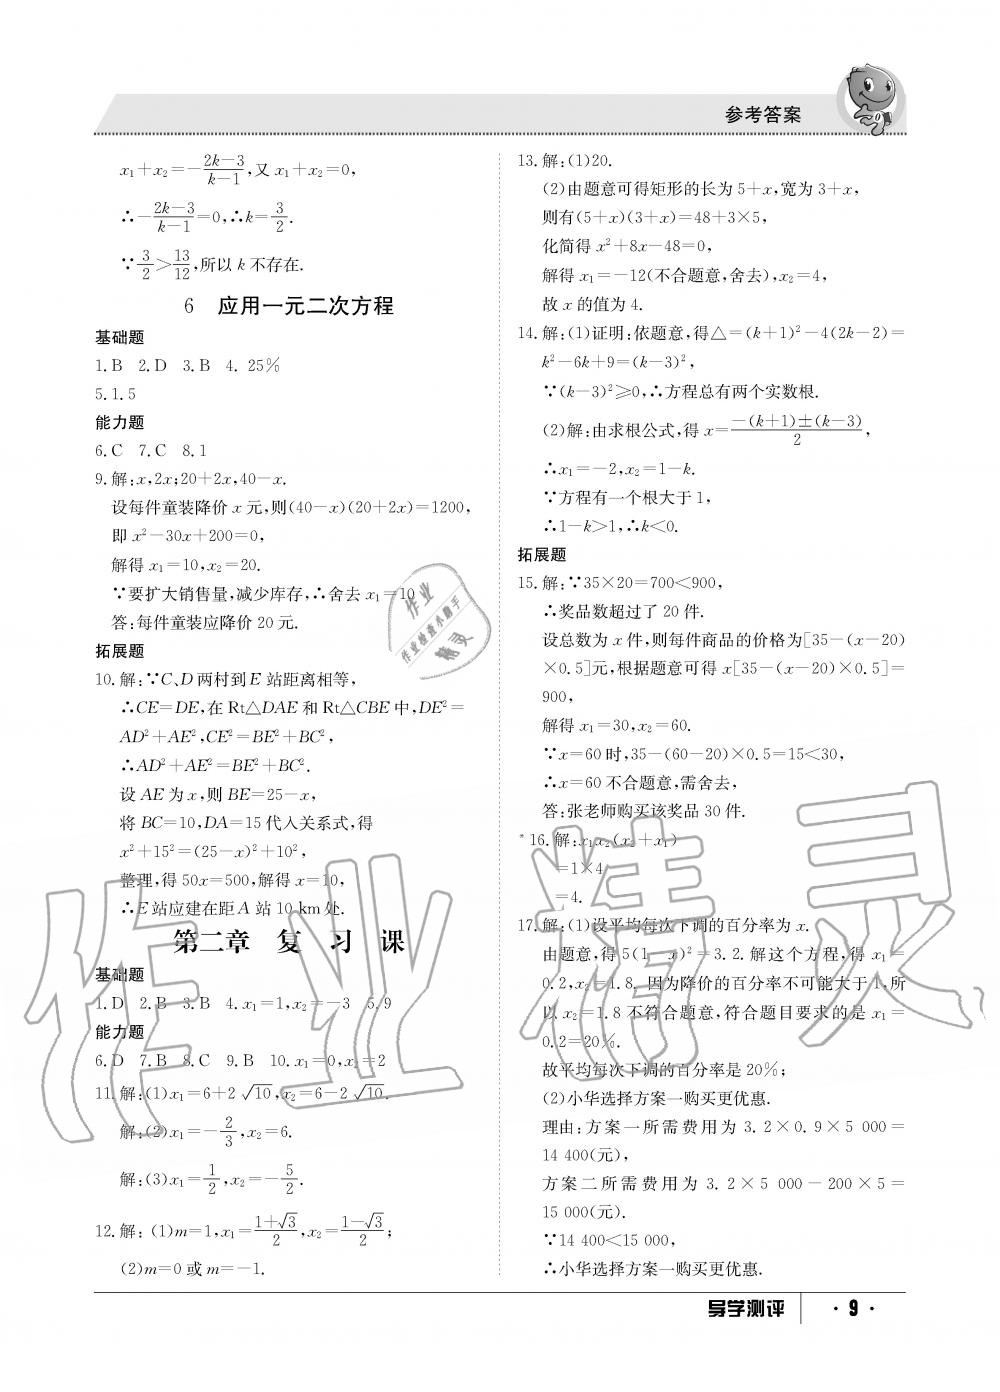 参考答案
x₁+x₂=-(2k-3)/(k-1),又 x₁+x₂=0,
∴-(2k-3)/(k-1)=0,∴k=3/2.
∵3/2>13/12,所以 k 不存在.
6 应用一元二次方程
基础题
1.B 2.D 3.B 4. 25%
5.1.5
能力题
6.C 7.C 8.1
9.解:x,2x;20+2x,40-x.
设每件童装降价 x 元,则(40-x)(20+2x)=1200,
即 x²-30x+200=0,
解得 x₁=10,x₂=20.
∵要扩大销售量,减少库存,∴舍去 x₁=10
答:每件童装应降价 20 元.
拓展题
10.解:∵C、D 两村到 E 站距离相等,
∴CE=DE,在 Rt△DAE 和 Rt△CBE 中,DE²=
AD²+AE²,CE²=BE²+BC²,
∴AD²+AE²=BE²+BC².
设 AE 为 x,则 BE=25-x,
将 BC=10,DA=15 代入关系式,得
x²+15²=(25-x)²+10²,
整理,得 50x=500,解得 x=10,
∴E站应建在距 A 站 10 km处.
第二章 复 习 课
基础题
1.D 2.B 3.B 4.x₁=1,x₂=-3 5.9
能力题
6.D 7.B 8.C 9.B 10.x₁=0,x₂=2
11.解:(1)x₁=6+2√10,x₂=6-2√10.
解:(2)x₁=-2/3,x₂=6.
解:(3)x₁=1/2,x₂=-5/2.
12.解: (1)m=1,x₁=(1+√3)/2,x₂=(1-√3)/2;
(2)m=0 或 m=-1.
13.解:(1)20.
(2)由题意可得矩形的长为 5+x,宽为 3+x,
则有(5+x)(3+x)=48+3×5,
化简得 x²+8x-48=0,
解得 x₁=-12(不合题意,舍去),x₂=4,
故 x 的值为 4.
14.解:(1)证明:依题意,得△=(k+1)²-4(2k-2)=
k²-6k+9=(k-3)²,
∵(k-3)²≥0,∴方程总有两个实数根.
(2)解:由求根公式,得 x=(-(k+1)±(k-3))/2,
∴x₁=-2,x₂=1-k.
∵方程有一个根大于 1,
∴1-k>1,∴k<0.
拓展题
15.解:∵35×20=700<900,
∴奖品数超过了 20 件.
设总数为 x 件,则每件商品的价格为[35-(x-20)
×0.5]元,根据题意可得 x[35-(x-20)×0.5]=
900,
解得 x₁=30,x₂=60.
∵x=60 时,35-(60-20)×0.5=15<30,
∴x=60 不合题意,需舍去,
答:张老师购买该奖品 30 件.
*16.解:x₁x₂(x₂+x₁)
=1×4
=4.
17.解:(1)设平均每次下调的百分率为 x.
由题意,得 5(1-x)²=3.2.解这个方程,得 x₁=
0.2,x₂=1.8. 因为降价的百分率不可能大于 1,所
以 x₂=1.8 不符合题意,符合题目要求的是 x₁=
0.2=20%.
故平均每次下调的百分率是 20%;
(2)小华选择方案一购买更优惠.
理由:方案一所需费用为 3.2×0.9×5 000=
14 400(元),
方案二所需费用为 3.2×5 000-200×5=
15 000(元).
∵14 400<15 000,
∴小华选择方案一购买更优惠.
导学测评
·9·
作业
作业检查小助手
精灵
作业精灵